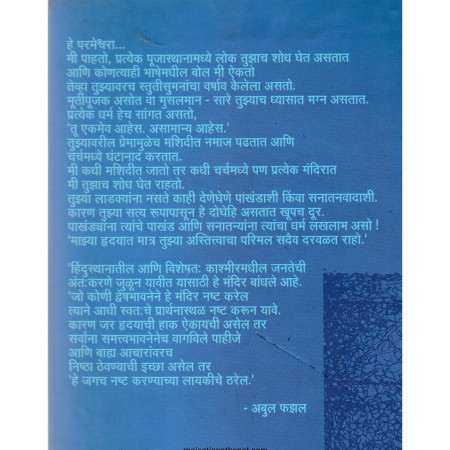 हे परमेश्वरा...
मी पाहतो, प्रत्येक पूजास्थानामध्ये लोक तुझाच शोध घेत असतात
आणि कोणत्याही भाषेमधील बोल मी ऐकतो
तेव्हा तुझ्यावरच स्तुतीसुमनांचा वर्षाव केलेला असतो.
मूर्तीपूजक असोत वा मुसलमान - सारे तुझ्याच ध्यासात मग्न असतात.
प्रत्येक धर्म हेच सांगत असतो,
'तू एकमेव आहेस. असामान्य आहेस.'
तुझ्यावरील प्रेमामुळेच मशिदीत नमाज पढतात आणि
चर्चमध्ये घंटानाद करतात.
मी कधी मशिदीत जातो तर कधी चर्चमध्ये पण प्रत्येक मंदिरात
मी तुझाच शोध घेत राहतो.
तुझ्या लाडक्यांना नसते काही देणेघेणे पाखंडाशी किंवा सनातनवादाशी.
कारण तुझ्या सत्य रूपापासून हे दोघेहि असतात खूपच दूर.
पाखंड्यांना त्यांचे पाखंड आणि सनातन्यांना त्यांचा धर्म लखलाभ असो !
'माझ्या हृदयात मात्र तुझ्या अस्तित्त्वाचा परिमल सदैव दरवळत राहो.'
'हिंदुस्थानातील आणि विशेषतः काश्मीरमधील जनतेची
अंतःकरणे जुळून यावीत यासाठी हे मंदिर बांधले आहे.
'जो कोणी द्वेषभावनेने हे मंदिर नष्ट करेल
त्याने आधी स्वतःचे प्रार्थनास्थळ नष्ट करून यावे.
कारण जर हृदयाची हाक ऐकायची असेल तर
सर्वांना समत्त्वभावनेनेच वागविले पाहीजे
आणि बाह्य आचारांवरच
निष्ठा ठेवण्याची इच्छा असेल तर
'हे जगच नष्ट करण्याच्या लायकीचे ठरेल.'
- अबुल फझल